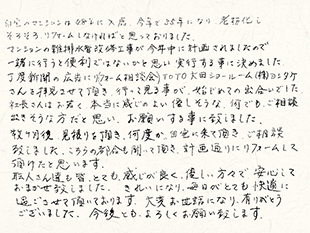 自宅のマンションは68才に入居、今年で35年になり、老朽化し
そろそろリフォームしなければと思っておりました。
マンションの雑排水管改修工事が今年中に計画されましたので
一緒に行うと便利ではないかと思い、実行する事に決めました。
丁度新聞の広告にリフォーム相談会)TOTO大田ショールーム(株)ヨシタケ
さんを拝見させて頂き、行って見る事が、始めての出合いでした。
社長さんはお若く、本当に感じのよい優しそうな、何でもご相談
出きそうな方だと思い、お願いする事に致しました。
数ヶ月後、見積りを頂き、何度か自宅に来て頂き、ご相談
致しました。こちらの都合も聞って頂き、計画通りにリフォームして
頂けたと思います。
職人さん達も皆、とても感じが良く、優しい方々で安心して
おまかせ致しました。きれいになり、毎日がとても快適に
過ごさせて頂いております。大変お世話になり、有りがとう
ございました。今後とも、よろしくお願い致します。